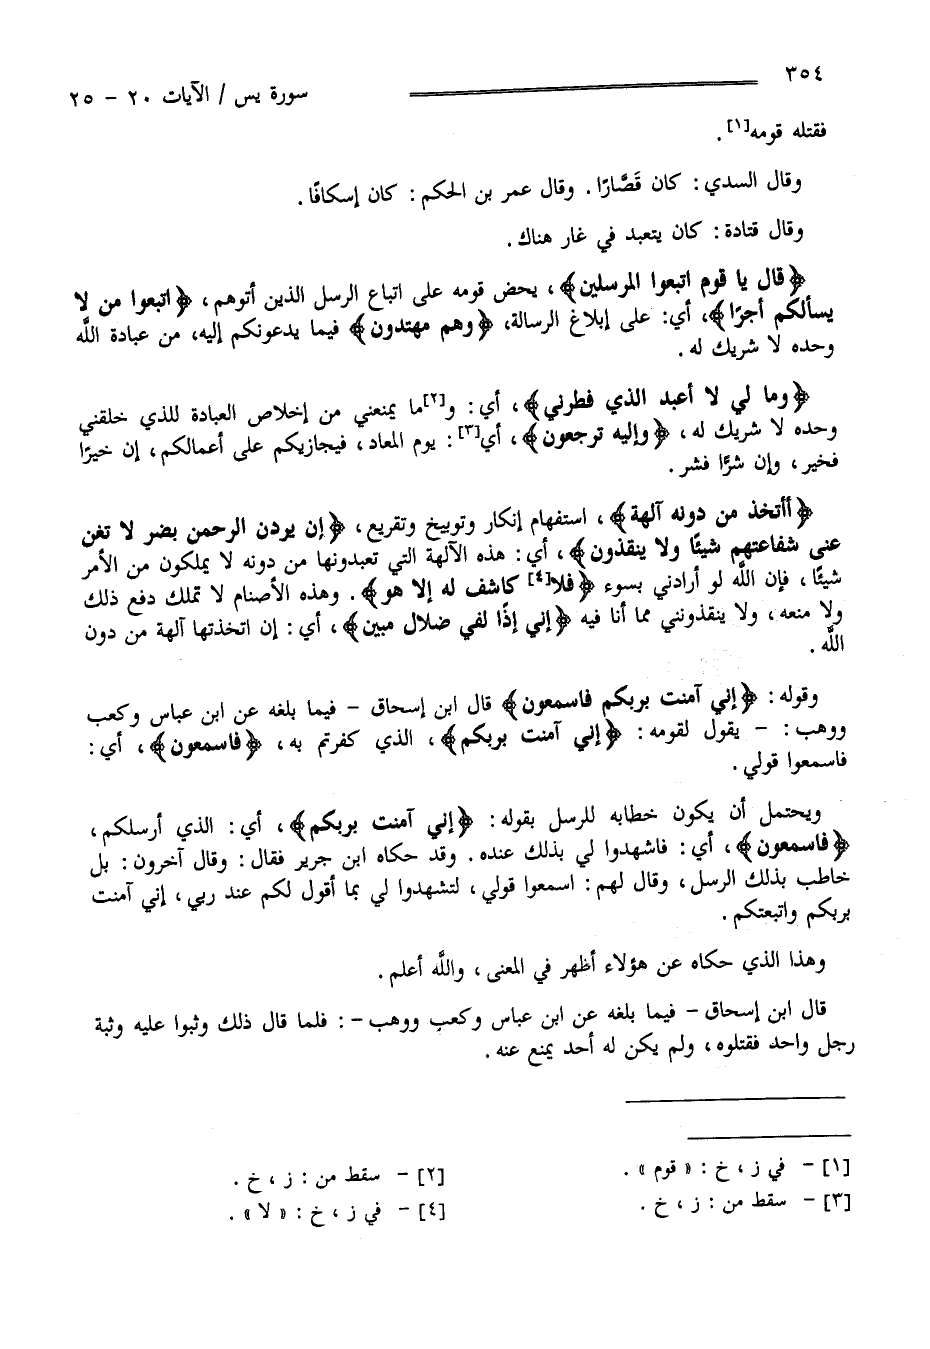 ٣٥٤
سورة يس / الآيات ٢٠ - ٢٥
فقتله قومه[١].
وقال السدي: كان قَصَّارًا. وقال عمر بن الحكم: كان إسكافًا.
وقال قتادة: كان يتعبد في غار هناك.
﴿قال يا قوم اتبعوا المرسلين﴾، يحض قومه على اتباع الرسل الذين أتوهم، ﴿اتبعوا من لا
يسألكم أجرًا﴾، أي: على إبلاغ الرسالة، ﴿وهم مهتدون﴾ فيما يدعونكم إليه، من عبادة اللَّه
وحده لا شريك له.
﴿وما لي لا أعبد الذي فطرني﴾، أي: و[٢]ما يمنعني من إخلاص العبادة للذي خلقني
وحده لا شريك له، ﴿وإليه ترجعون﴾، أي[٣]: يوم المعاد، فيجازيكم على أعمالكم، إن خيرًا
فخير، وإن شرًّا فشر.
﴿أأتخذ من دونه آلهة﴾، استفهام إنكار وتوبيخ وتقريع، ﴿إن يردن الرحمن بضر لا تغن
عني شفاعتهم شيئًا ولا ينقذون﴾، أي: هذه الآلهة التي تعبدونها من دونه لا يملكون من الأمر
شيئًا، فإن اللَّه لو أرادني بسوء ﴿فلا[٤] كاشف له إلا هو﴾. وهذه الأصنام لا تملك دفع ذلك
ولا منعه، ولا ينقذونني مما أنا فيه ﴿إني إذًا لفي ضلال مبين﴾، أي: إن اتخذتها آلهة من دون
اللَّه.
وقوله: ﴿إني آمنت بربكم فاسمعون﴾ قال ابن إسحاق - فيما بلغه عن ابن عباس وكعب
ووهب: - يقول لقومه: ﴿إني آمنت بربكم﴾، الذي كفرتم به، ﴿فاسمعون﴾، أي:
فاسمعوا قولي.
ويحتمل أن يكون خطابه للرسل بقوله: ﴿إني آمنت بربكم﴾، أي: الذي أرسلكم،
﴿فاسمعون﴾، أي: فاشهدوا لي بذلك عنده. وقد حكاه ابن جرير فقال: وقال آخرون: بل
خاطب بذلك الرسل، وقال لهم: اسمعوا قولي، لتشهدوا لي بما أقول لكم عند ربي، إني آمنت
بربكم واتبعتكم.
وهذا الذي حكاه عن هؤلاء أظهر في المعنى، واللَّه أعلم.
قال ابن إسحاق - فيما بلغه عن ابن عباس وكعب ووهب -: فلما قال ذلك وثبوا عليه وثبة
رجل واحد فقتلوه، ولم يكن له أحد يمنع عنه.
[١] - في ز، خ: «قوم».
[٢] - سقط من: ز، خ.
[٣] - سقط من: ز، خ.
[٤] - في ز، خ: «لا».